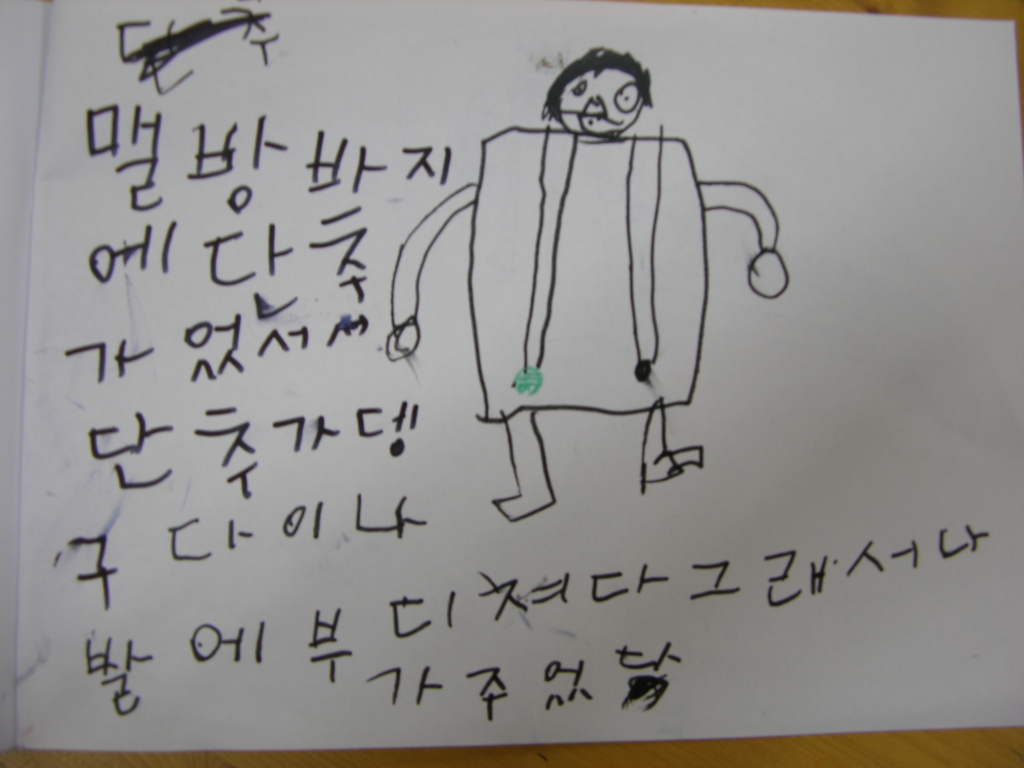 단추
맬방바지
에단추
가 었서서
단추가뎅
구 다 이 나
발 에 부 디 쳐 다 그 래 서 나
가 주 었 다